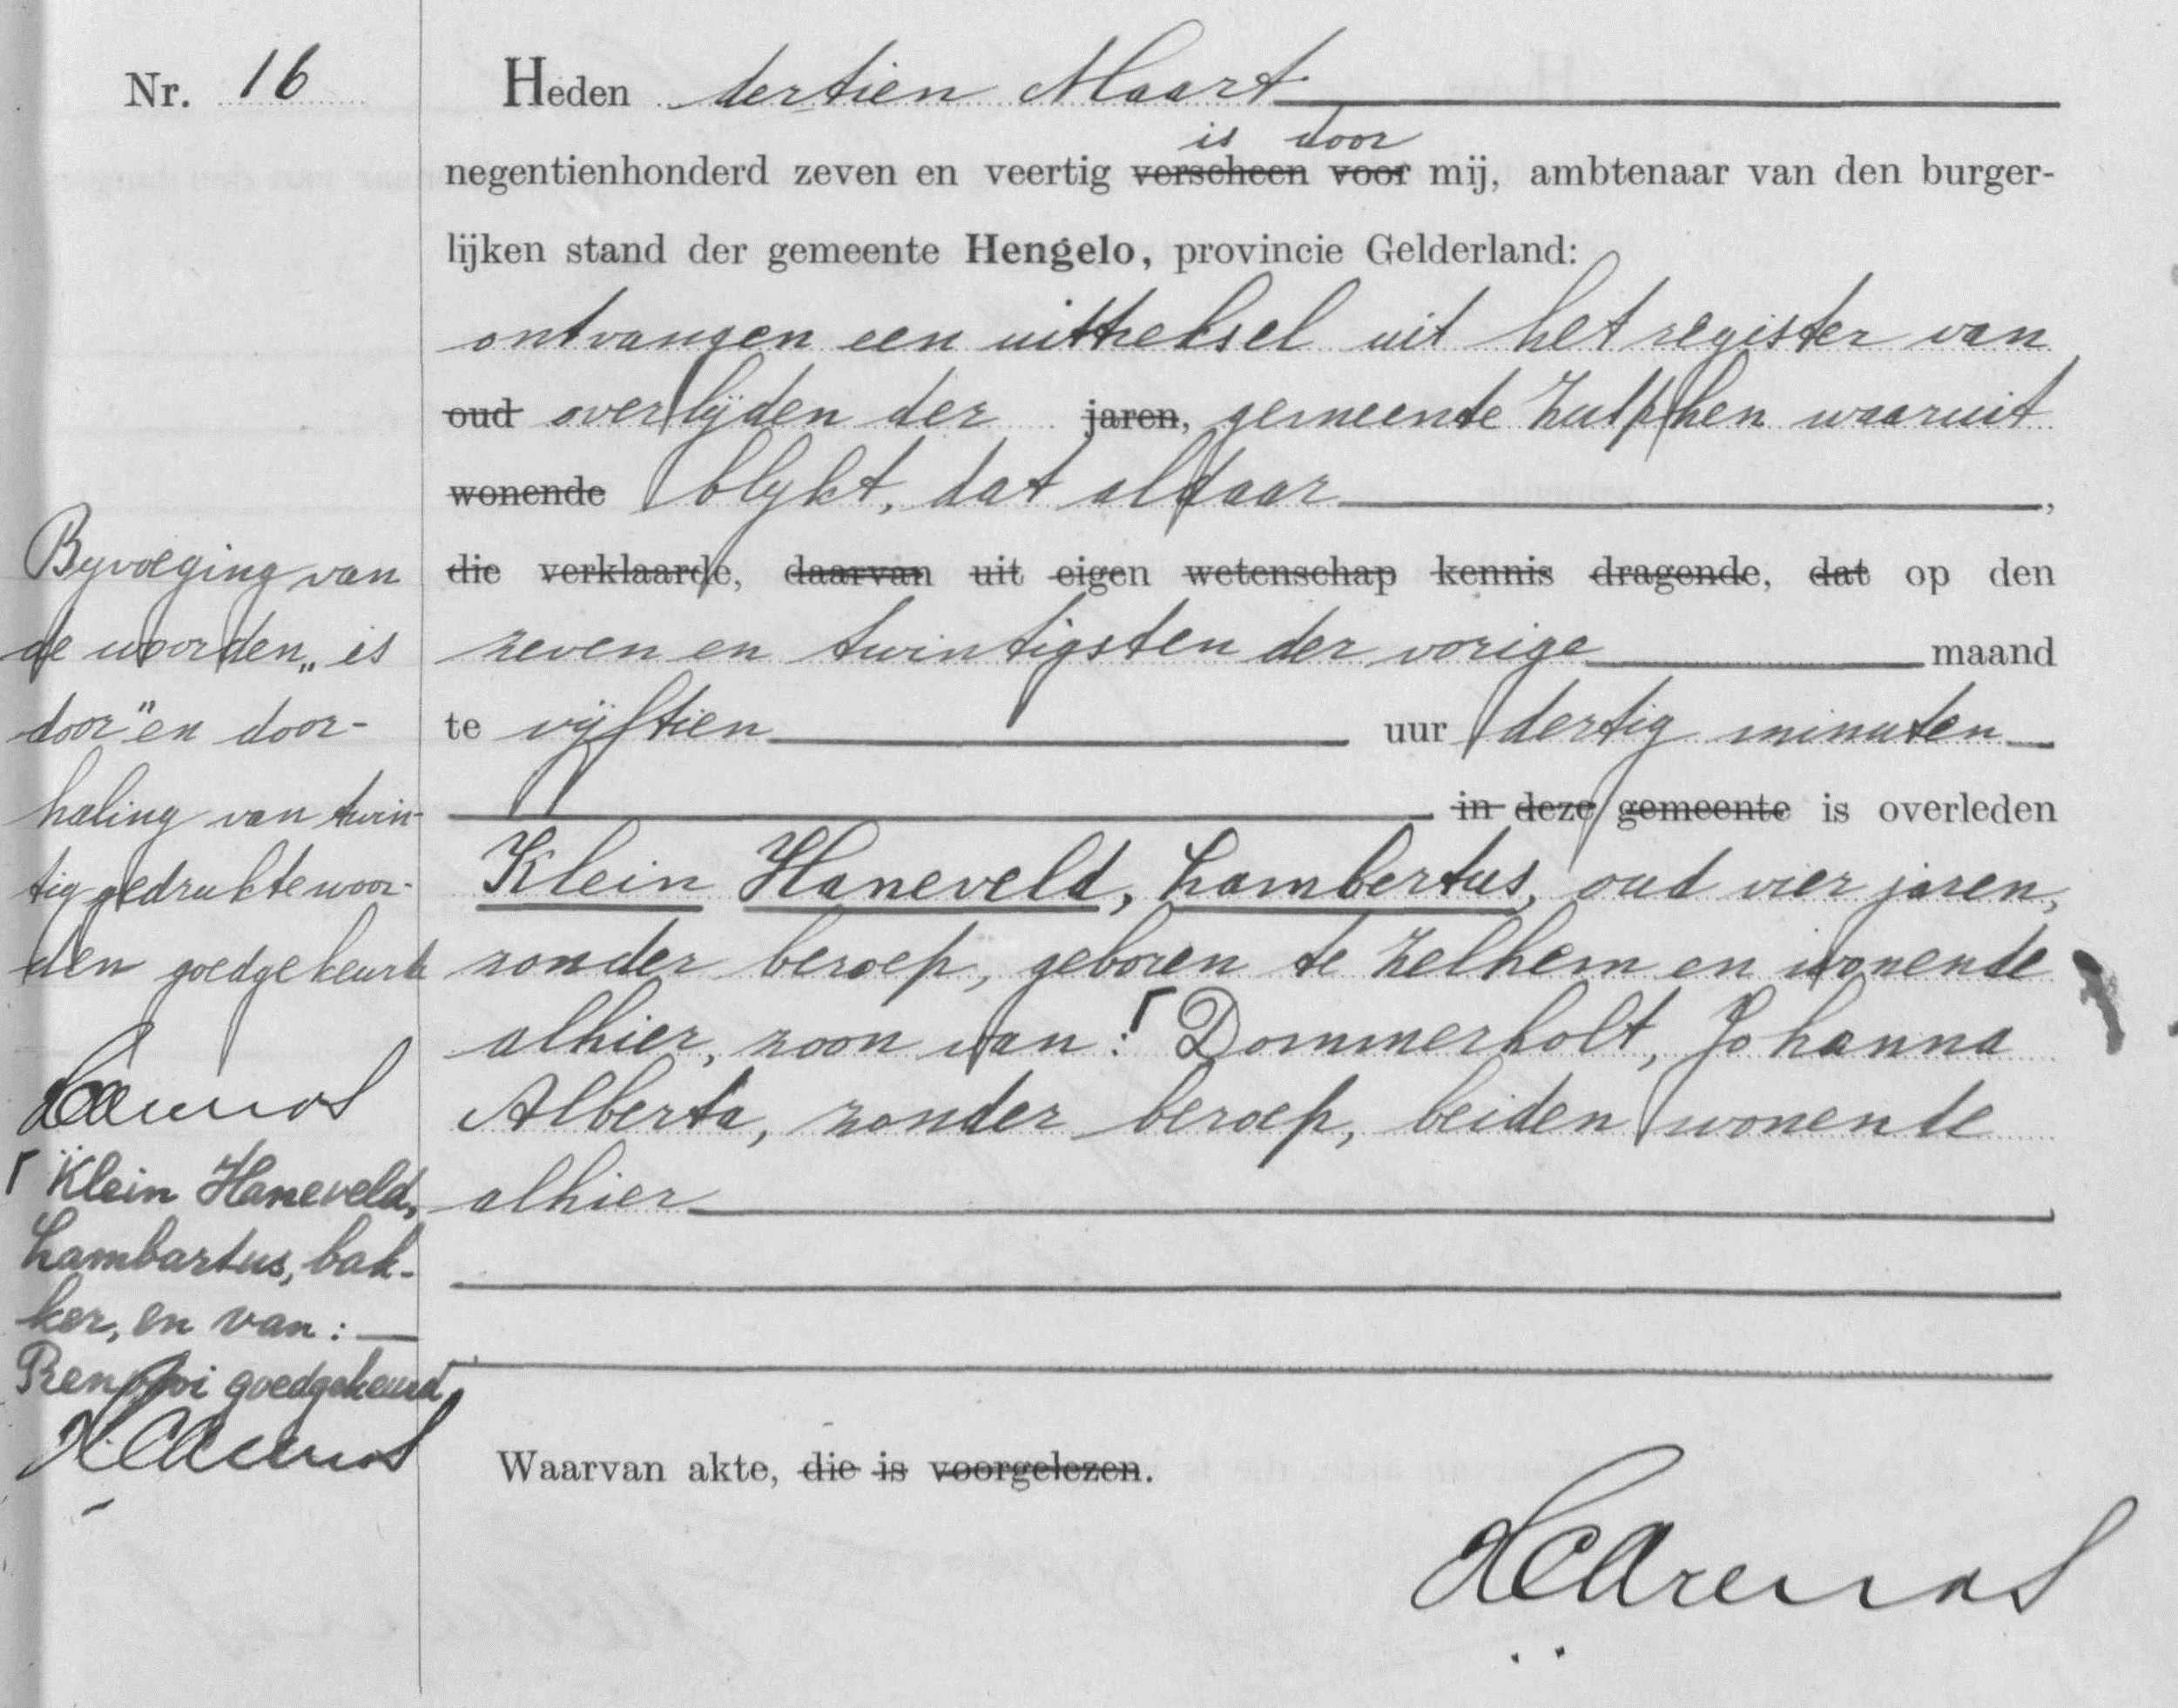 Nr. 16
Heden dertien Maart
is door
negentienhonderd zeven en veertig verscheen voor mij, ambtenaar van den burger-
lijken stand der gemeente Hengelo, provincie Gelderland:
ontvangen een uittreksel uit het register van
oud overlijden der jaren, gemeente Zutphen waaruit
wonende blijkt, dat aldaar,
die verklaarde, daarvan uit eigen wetenschap kennis dragende, dat op den
zeven en twintigsten der vorige maand
te vijftien uur dertig minuten
in deze gemeente is overleden
Klein Haneveld, Lambertus, oud vier jaren,
zonder beroep, geboren te Zelhem en wonende
alhier, zoon van: Γ Dommerholt, Johanna
Alberta, zonder beroep, beiden wonende
alhier
Waarvan akte, die is voorgelezen.
Byvoeging van
de woorden „is
door" en door-
haling van twin-
tig gedrukte woor-
den goedgekeurd
Γ Klein Haneveld,
Lambartus, bak-
ker, en van:
Renvooi goedgekeurd